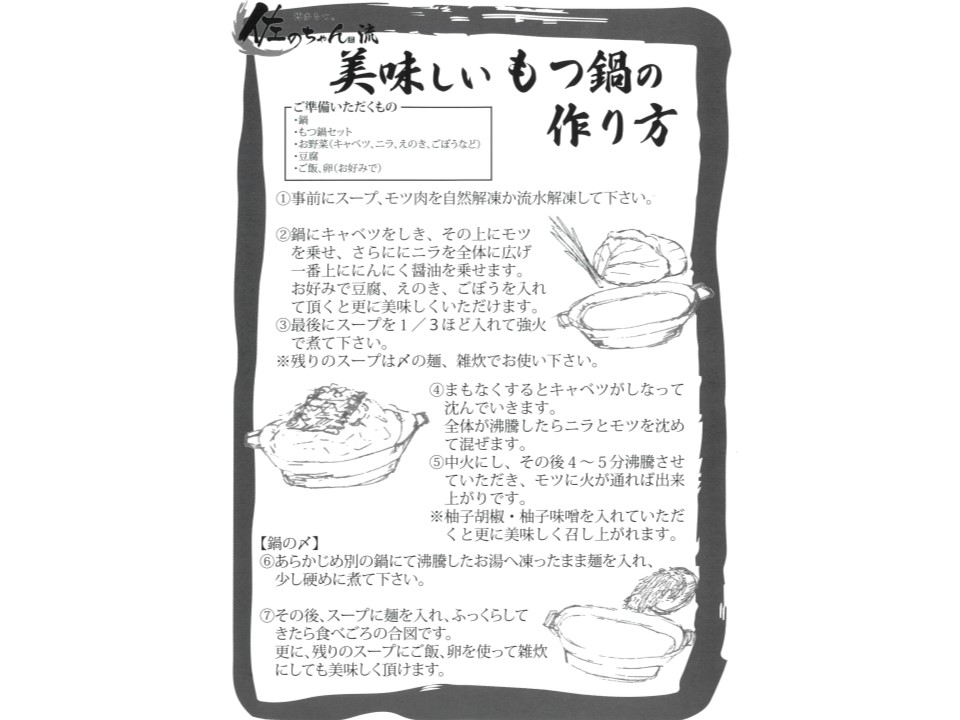 佐のちゃん流
美味しいもつ鍋の
作り方
ご準備いただくもの
・鍋
・もつ鍋セット
・お野菜(キャベツ、ニラ、えのき、ごぼうなど)
・豆腐
・ご飯、卵(お好みで)
①事前にスープ、モツ肉を自然解凍か流水解凍して下さい。
②鍋にキャベツをしき、その上にモツ
を乗せ、さらににニラを全体に広げ
一番上ににんにく醤油を乗せます。
お好みで豆腐、えのき、ごぼうを入れ
て頂くと更に美味しくいただけます。
③最後にスープを1/3ほど入れて強火
で煮て下さい。
※残りのスープは〆の麺、雑炊でお使い下さい。
④まもなくするとキャベツがしなって
沈んでいきます。
全体が沸騰したらニラとモツを沈め
て混ぜます。
⑤中火にし、その後4~5分沸騰させ
ていただき、モツに火が通れば出来
上がりです。
※柚子胡椒・柚子味噌を入れていただ
くと更に美味しく召し上がれます。
【鍋の〆】
⑥あらかじめ別の鍋にて沸騰したお湯へ凍ったまま麺を入れ、
少し硬めに煮て下さい。
⑦その後、スープに麺を入れ、ふっくらして
きたら食べごろの合図です。
更に、残りのスープにご飯、卵を使って雑炊
にしても美味しく頂けます。